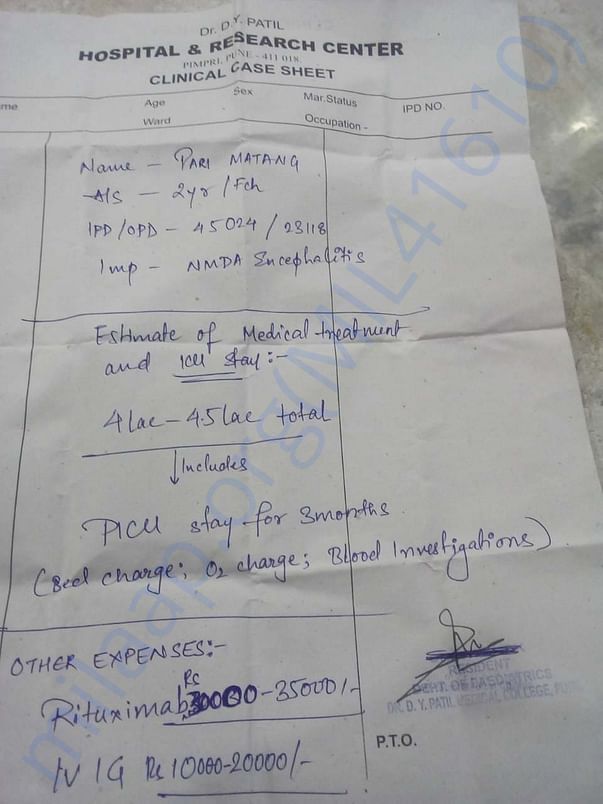 Dr. D.Y. PATIL
HOSPITAL & RESEARCH CENTER
PIMPRI, PUNE - 411 018.
CLINICAL CASE SHEET
me Age Sex Mar.Status IPD NO.
Ward Occupation -
Name - PARI MATANG
A/S - 2yr / Fch
IPD/OPD - 45024 / 23118
Imp - NMDA Encephalitis
Estimate of Medical treatment
and ICU stay:-
4lac - 4.5lac total
Includes
PICU stay for 3months
(Bed charge; O2 charge; Blood Investigations)
OTHER EXPENSES:-
Rituximab Rs 30000-35000/-
IVIG Rs 10000-20000/-
RESIDENT
DEPT. OF PAEDIATRICS
DR. D. Y. PATIL MEDICAL COLLEGE, PUNE
P.T.O.
milaap.org(MIL41610)